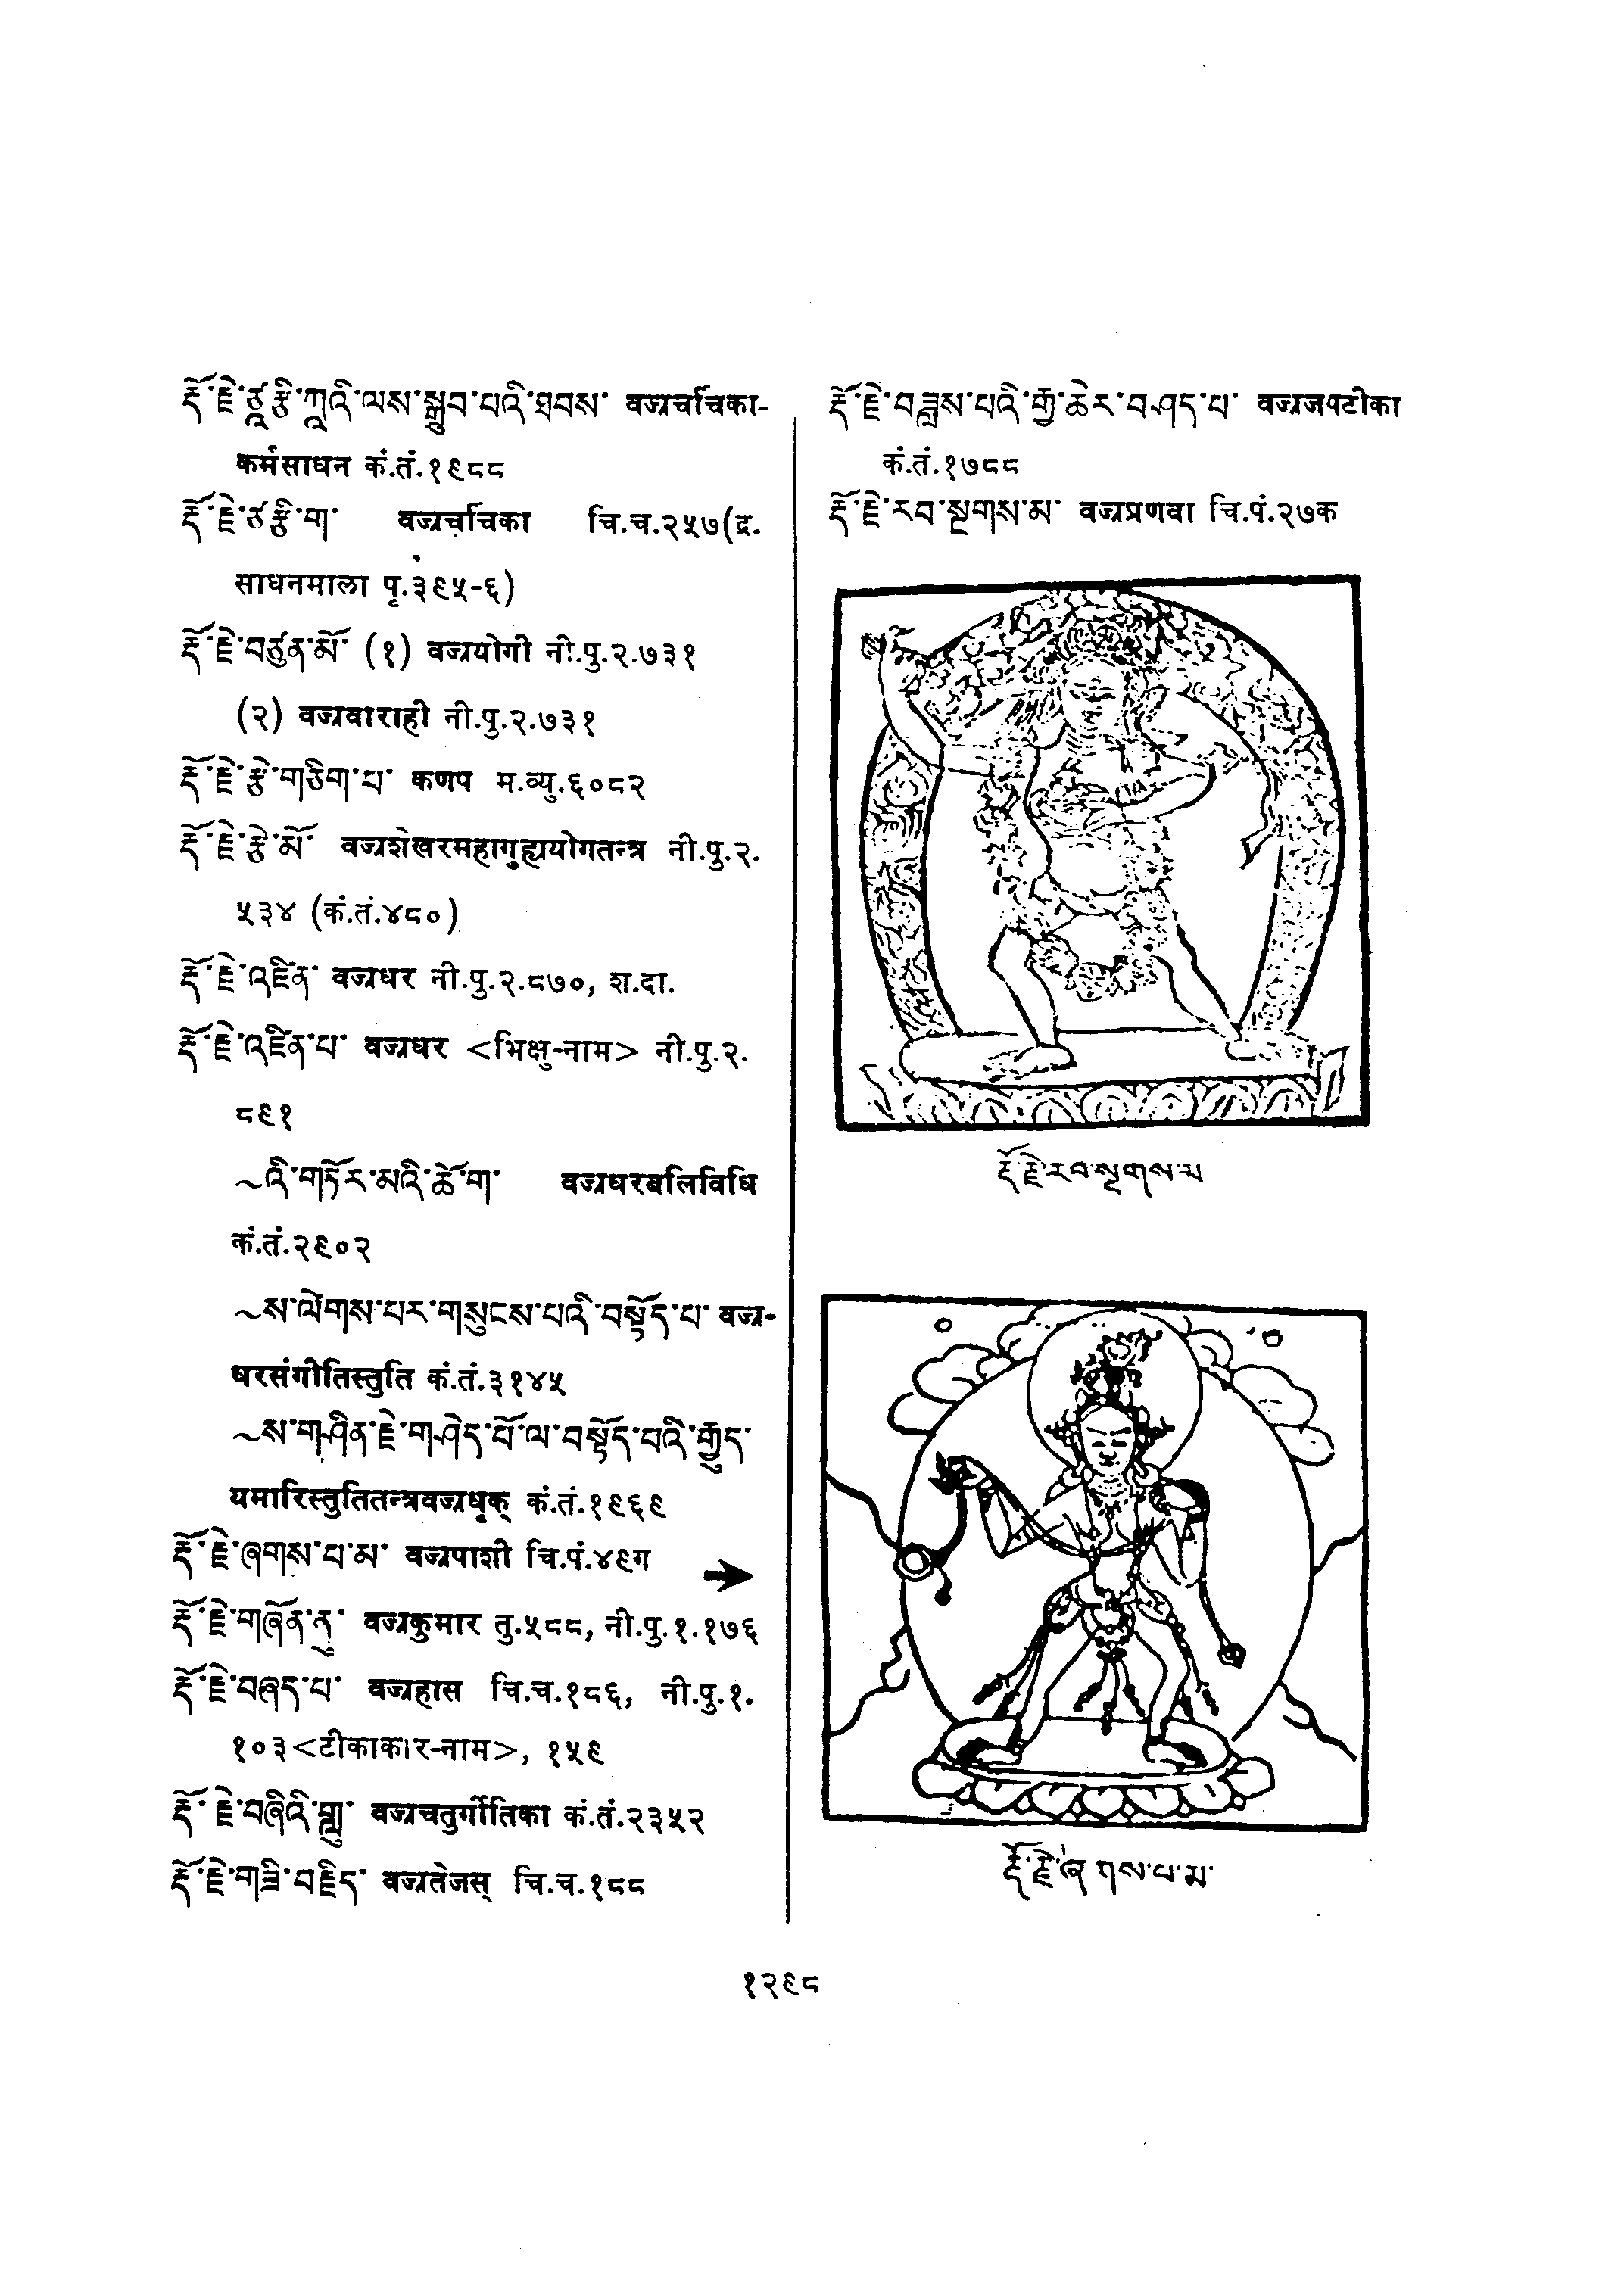 རྡོ་རྗེ་ཙཱརྩི་ཀཱའི་ལས་སྒྲུབ་པའི་ཐབས་ वज्रचर्चिका-
कर्मसाधन कं.तं.१९८८
རྡོ་རྗེ་ཙརྩི་ག་ वज्रचर्चिका चि.च.२५७(द्र.
साधनमाला पृ.३९५-६)
རྡོ་རྗེ་བཙུན་མོ་ (१) वज्रयोगी नी.पु.२.७३१
(२) वज्रवाराही नी.पु.२.७३१
རྡོ་རྗེ་རྩེ་གཅིག་པ་ कणप म.व्यु.६०८२
རྡོ་རྗེ་རྩེ་མོ་ वज्रशेखरमहागुह्ययोगतन्त्र नी.पु.२.
५३४ (कं.तं.४८०)
རྡོ་རྗེ་འཛིན་ वज्रधर नी.पु.२.८७०, श.दा.
རྡོ་རྗེ་འཛིན་པ་ वज्रधर <भिक्षु-नाम> नी.पु.२.
८९१
~འི་གཏོར་མའི་ཆོ་ག་ वज्रधरबलिविधि
कं.तं.२९०२
~ས་ལེགས་པར་གསུངས་པའི་བསྟོད་པ་ वज्र-
धरसंगीतिस्तुति कं.तं.३१४५
~ས་གཤིན་རྗེ་གཤེད་པོ་ལ་བསྟོད་པའི་རྒྱུད་
यमारिस्तुतितन्त्रवज्रधृक् कं.तं.१९६९
རྡོ་རྗེ་ཞགས་པ་མ་ वज्रपाशी चि.पं.४९ग
རྡོ་རྗེ་གཞོན་ནུ་ वज्रकुमार तु.५८८, नी.पु.१.१७६
རྡོ་རྗེ་བཞད་པ་ वज्रहास चि.च.१८६, नी.पु.१.
१०३<टीकाकार-नाम>, १५९
རྡོ་རྗེ་བཞིའི་གླུ་ वज्रचतुर्गीतिका कं.तं.२३५२
རྡོ་རྗེ་གཟི་བརྗིད་ वज्रतेजस् चि.च.१८८
རྡོ་རྗེ་བཟླས་པའི་རྒྱ་ཆེར་བཤད་པ་ वज्रजपटीका
कं.तं.१७८८
རྡོ་རྗེ་རབ་སྔགས་མ་ वज्रप्रणवा चि.पं.२७क
རྡོ་རྗེ་རབ་སྔགས་མ
རྡོ་རྗེ་ཞགས་པ་མ་
१२९८